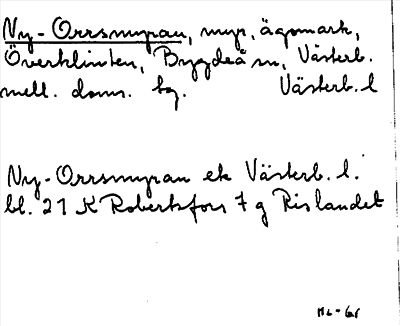 Ny-Orrsmyran, myr, ägomark,
Överklinten, Bygdeå sn, Västerb.
mell. doms. hg. Västerb. l
Ny-Orrsmyran ek Västerb. l.
bl. 21 K Robertsfors 7 g Rislandet